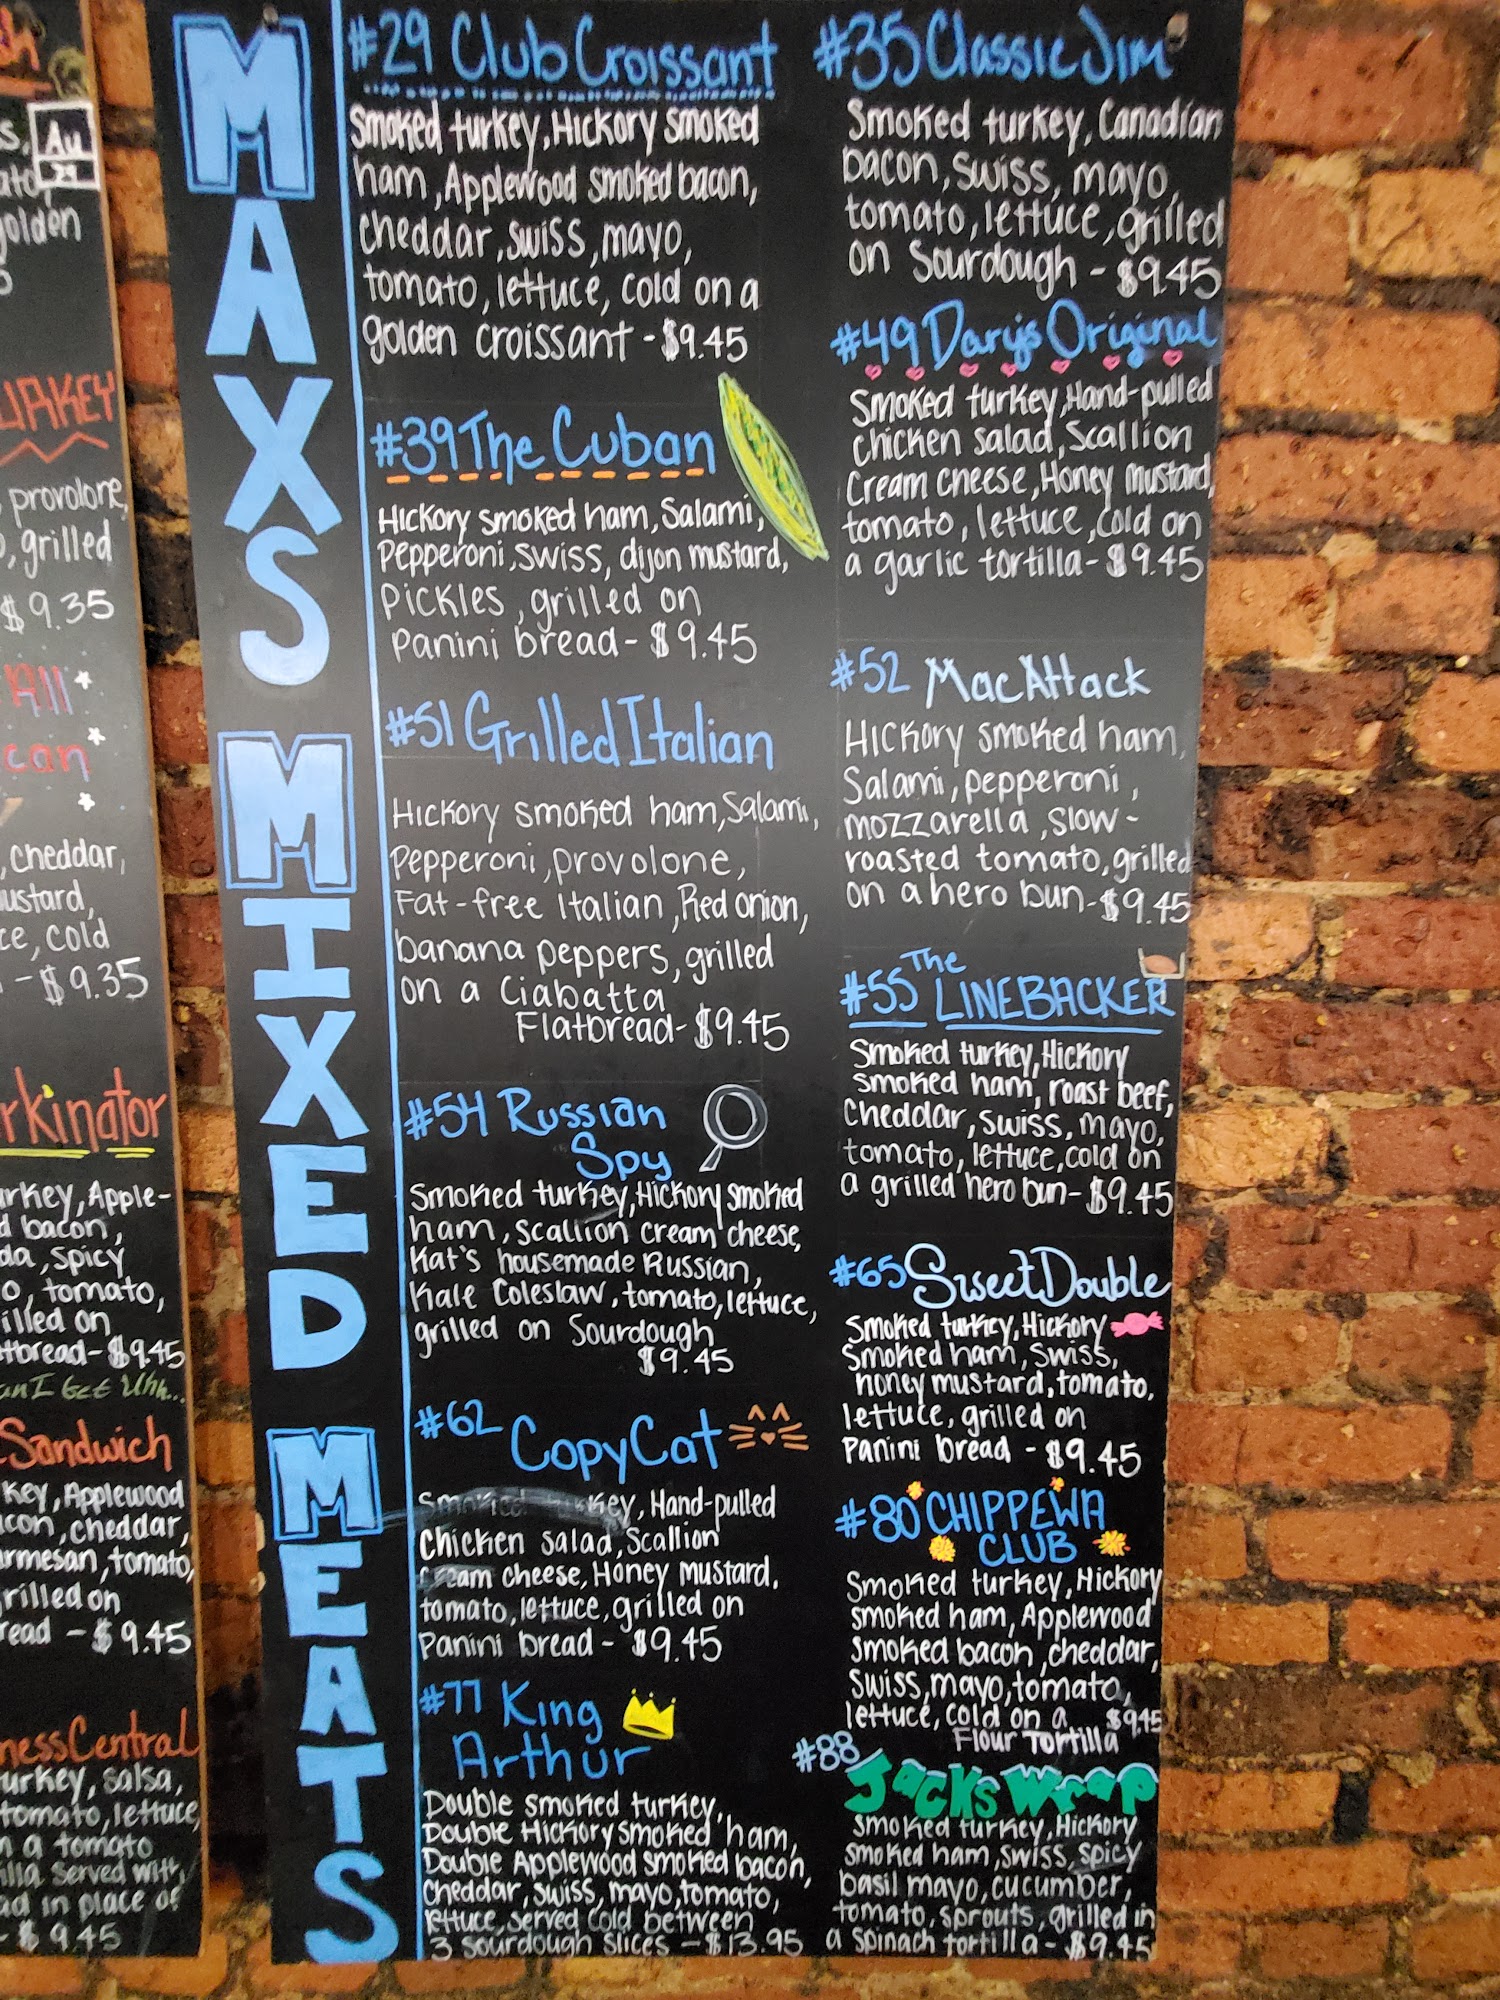 Au
29
golden
provolone,
grilled
$9.35
All
can
cheddar,
cold
- $9.35
Apple-
bacon,
spicy
tomato,
on
- $9.45
Sandwich
Applewood
cheddar,
tomato,
on
- $9.45
Central
salsa,
tomato, lettuce,
a tomato
served with
in place of
- $9.45
MAXS MIXED MEATS
#29 Club Croissant
Smoked turkey, Hickory smoked
ham, Applewood smoked bacon,
cheddar, swiss, mayo,
tomato, lettuce, cold on a
golden croissant - $9.45
#39 The Cuban
Hickory smoked ham, Salami,
Pepperoni, swiss, dijon mustard,
Pickles, grilled on
Panini bread - $9.45
#51 Grilled Italian
Hickory smoked ham, Salami,
Pepperoni, provolone,
Fat-free Italian, Red onion,
banana peppers, grilled
on a Ciabatta
Flatbread - $9.45
#54 Russian
Spy
Smoked turkey, Hickory smoked
ham, scallion cream cheese,
Kat's housemade Russian,
Kale Coleslaw, tomato, lettuce,
grilled on Sourdough
$9.45
#62 CopyCat
Smoked turkey, Hand-pulled
Chicken salad, Scallion
cream cheese, Honey mustard,
tomato, lettuce, grilled on
Panini bread - $9.45
#77 King
Arthur
Double smoked turkey,
Double Hickory smoked ham,
Double Applewood smoked bacon,
cheddar, swiss, mayo, tomato,
lettuce, served cold between
3 sourdough slices - $13.95
#35 Classic Jim
Smoked turkey, Canadian
bacon, swiss, mayo,
tomato, lettuce, grilled
on Sourdough - $9.45
#49 Daryjs Original
Smoked turkey, Hand-pulled
chicken salad, Scallion
Cream cheese, Honey mustard,
tomato, lettuce, cold on
a garlic tortilla - $9.45
#52 Mac Attack
Hickory smoked ham,
Salami, pepperoni,
mozzarella, slow-
roasted tomato, grilled
on a hero bun - $9.45
#55 The LINEBACKER
Smoked turkey, Hickory
smoked ham, roast beef,
Cheddar, swiss, mayo,
tomato, lettuce, cold on
a grilled hero bun - $9.45
#65 Sweet Double
Smoked turkey, Hickory
Smoked ham, swiss,
honey mustard, tomato,
lettuce, grilled on
Panini bread - $9.45
#80 CHIPPEWA
CLUB
Smoked turkey, Hickory
smoked ham, Applewood
smoked bacon, cheddar,
swiss, mayo, tomato,
lettuce, cold on a $9.45
Flour Tortilla
#88 Jacks Wrap
Smoked turkey, Hickory
smoked ham, swiss, spicy
basil mayo, cucumber,
tomato, sprouts, grilled in
a spinach tortilla - $9.45